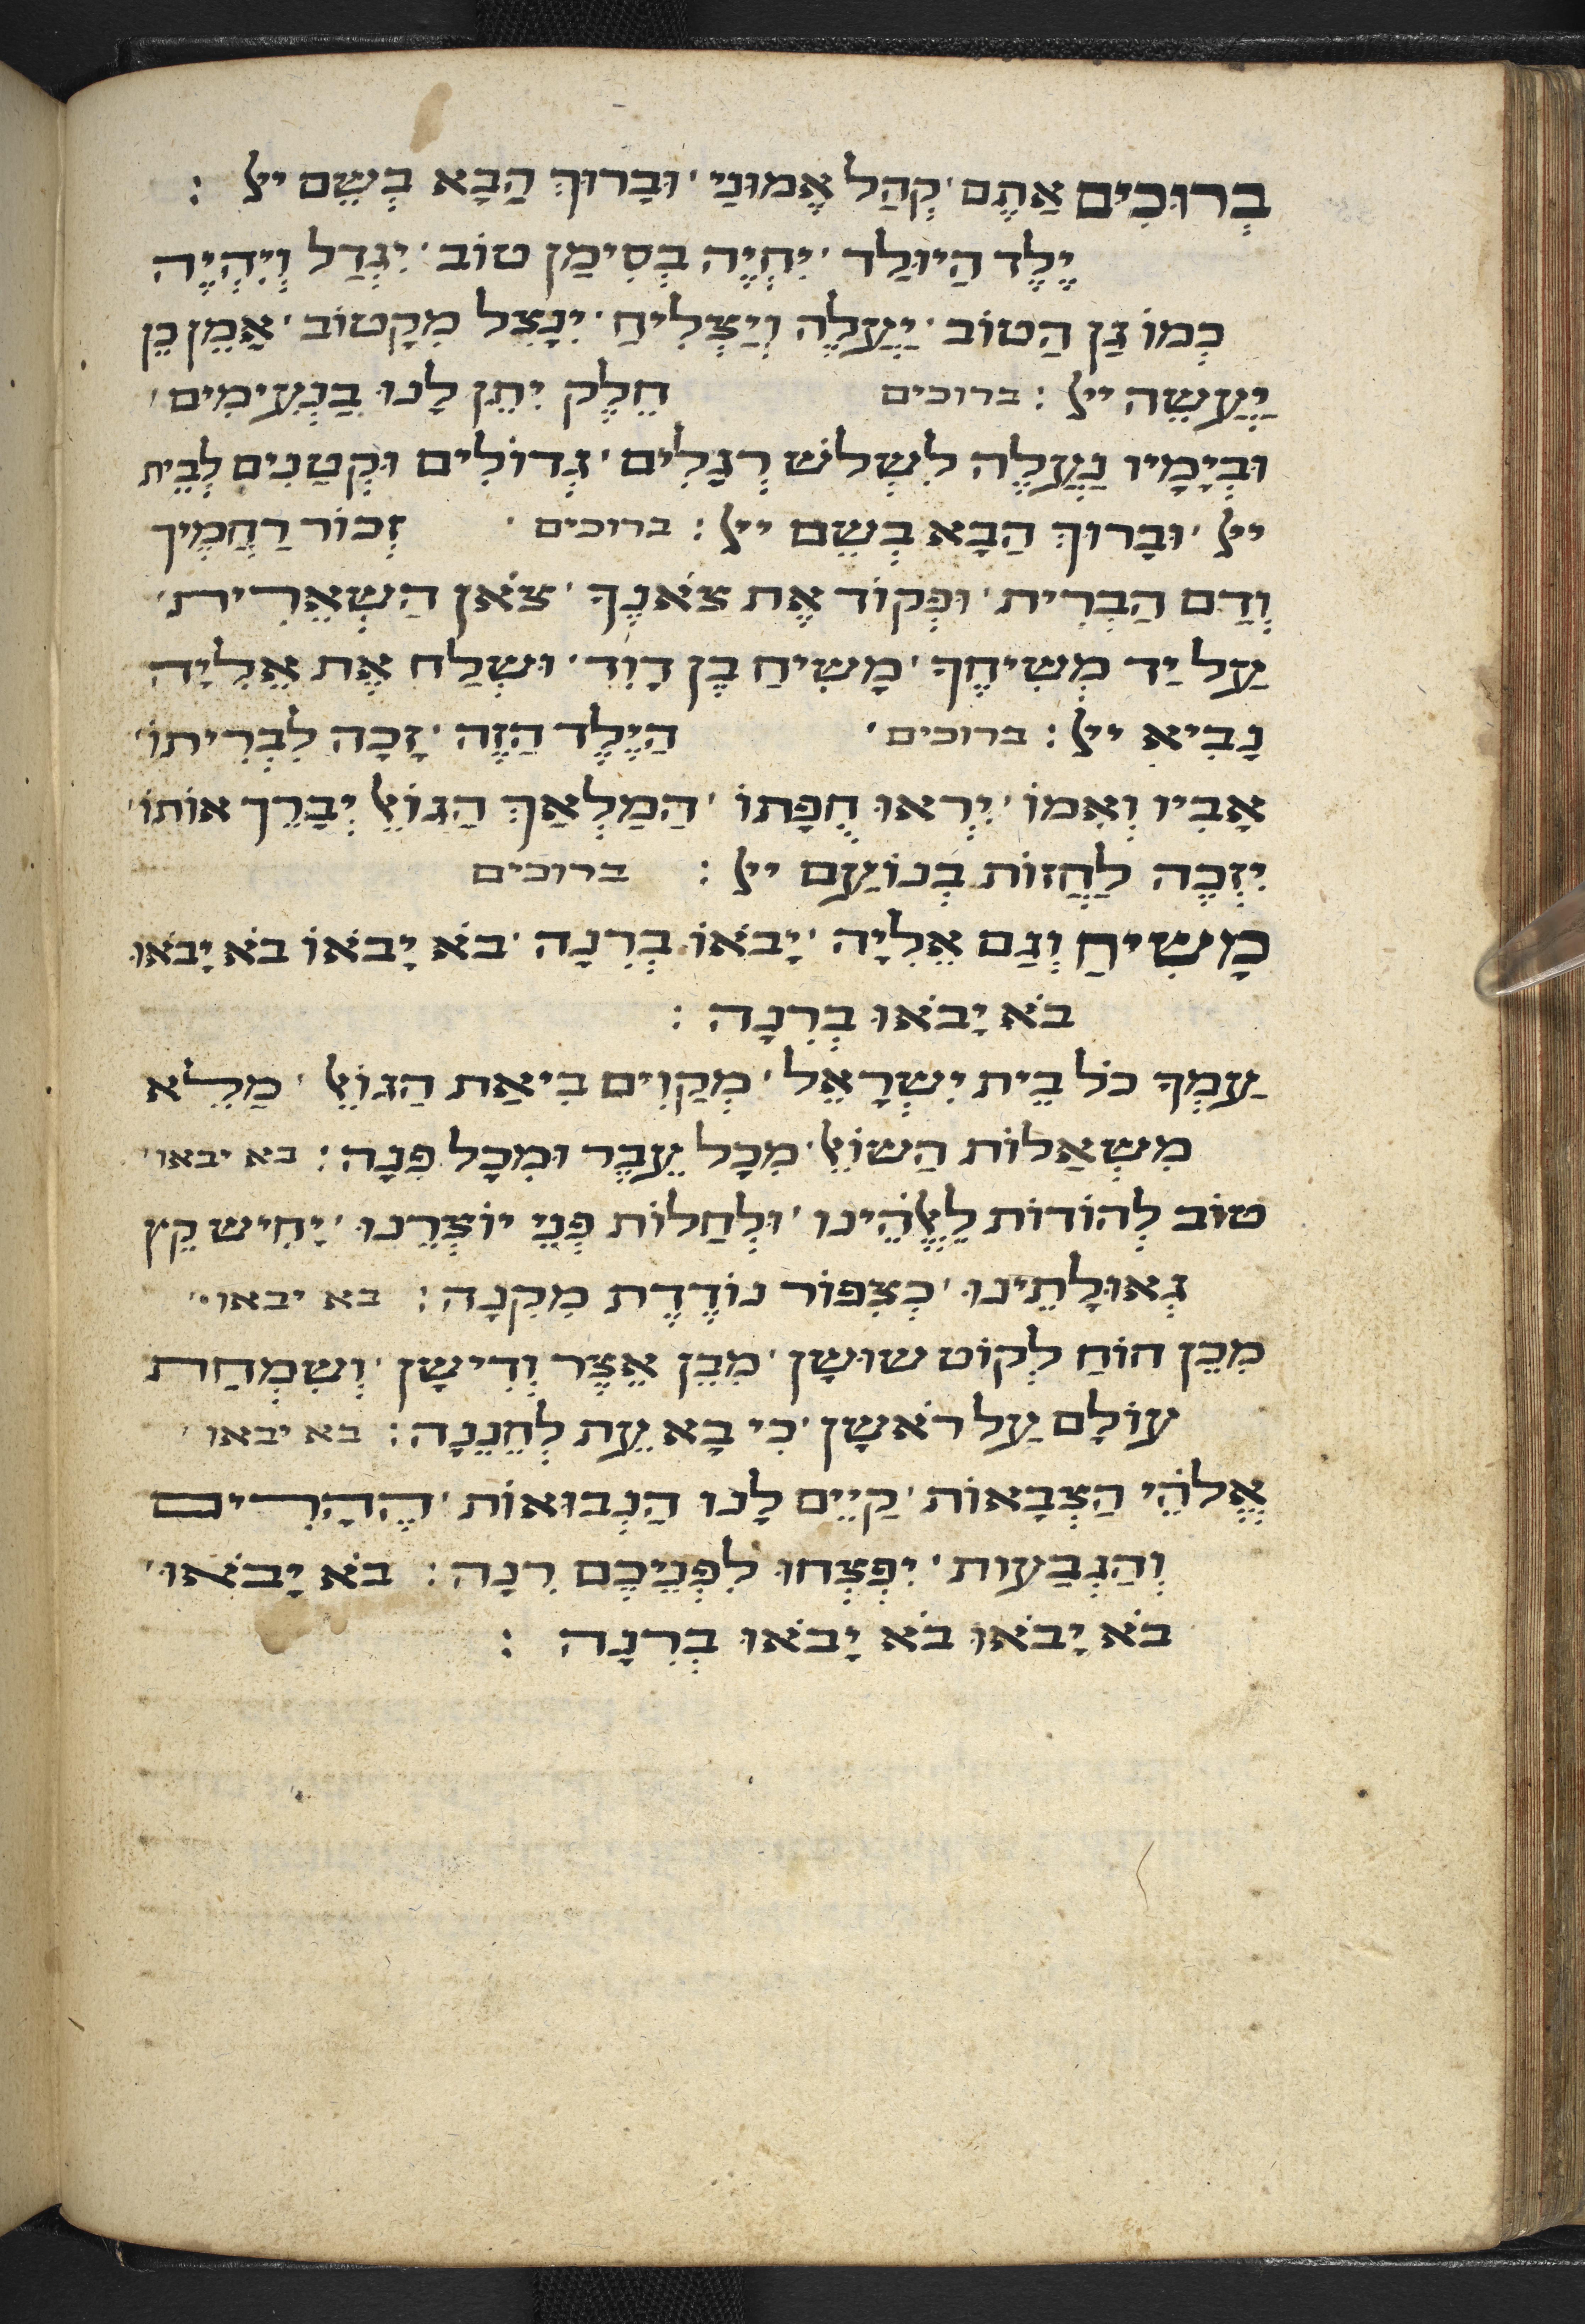 בְרוּכִים אַתֶם ׳ קְהַל אֶמוּנַי ׳ וּבָרוּךְ הַבָא בְשֵם ייָ :
יֶלֶד הַיוּלַד ׳ יִחְיֶה בְסִימַן טוֹב ׳ יִגְדַל וְיִהְיֶה
כְמוֹ גַן הַטוֹב ׳ יַעֲלֶה וְיַצְלִיחַ ׳ יִנָצֵל מִקָטוֹב ׳ אָמֵן כֵן
יַעֲשֶה ייָ : ברוכים חֵלֶק יִתֵן לָנוּ בַנְעִימִים ׳
וּבְיָמָיו נַעֲלֶה לִשְלֹש רְגָלִים ׳ גְדוֹלִים וּקְטַנִים לְבֵית
ייָ ׳ וּבָרוּךְ הַבָא בְשֵם ייָ : ברוכים ׳ זְכוֹר רַחֲמֶיךָ
וְדַם הַבְרִית ׳ וּפְקוֹד אֶת צֹאנֶךָ ׳ צֹאן הַשְאֵרִית ׳
עַל יַד מְשִיחֶךָ ׳ מָשִיחַ בֶן דָוִד ׳ וּשְלַח אֶת אֵלִיָה
נָבִיא ייָ : ברוכים ׳ הַיֶלֶד הַזֶה ׳ זָכָה לִבְרִיתוֹ ׳
אָבִיו וְאִמוֹ ׳ יִרְאוּ חֻפָתוֹ ׳ הַמַלְאָךְ הַגוֹאֵל יְבָרֵךְ אוֹתוֹ ׳
יִזְכֶה לַחֲזוֹת בְנוֹעַם ייָ : ברוכים
מָשִיחַ וְגַם אֵלִיָה ׳ יָבֹאוּ בְרִנָה ׳ בֹא יָבֹאוּ בֹא יָבֹאוּ
בֹא יָבֹאוּ בְרִנָה :
עַמְךָ כֹל בֵית יִשְרָאֵל ׳ מְקַוִים בִיאַת הַגוֹאֵל ׳ מַלֵא
מִשְאֲלוֹת הַשוֹאֵל ׳ מִכָל עֵבֶר וּמִכָל פִנָה : בא יבאו ׳
טוֹב לְהוֹדוֹת לֵאלֹהֵינוּ ׳ וּלְחַלוֹת פְנֵי יוֹצְרֵנוּ ׳ יָחִיש קֵץ
גְאוּלָתֵינוּ ׳ כְצִפוֹר נוֹדֶדֶת מִקִנָה : בא יבאו ׳
מִבֵן חוֹחַ לְקוֹט שוּשָן ׳ מִבֵן אֵצֶר וְדִישָן ׳ וְשִמְחַת
עוֹלָם עַל רֹאשָן ׳ כִי בָא עֵת לְחֶנֵנָה : בא יבאו ׳
אֱלֹהֵי הַצְבָאוֹת ׳ קַיֵים לָנוּ הַנְבוּאוֹת ׳ הֶהָרִים
וְהַגְבַעוֹת ׳ יִפְצְחוּ לִפְנֵיכֶם רִנָה : בֹא יָבֹאוּ ׳
בֹא יָבֹאוּ בֹא יָבֹאוּ בְרִנָה :